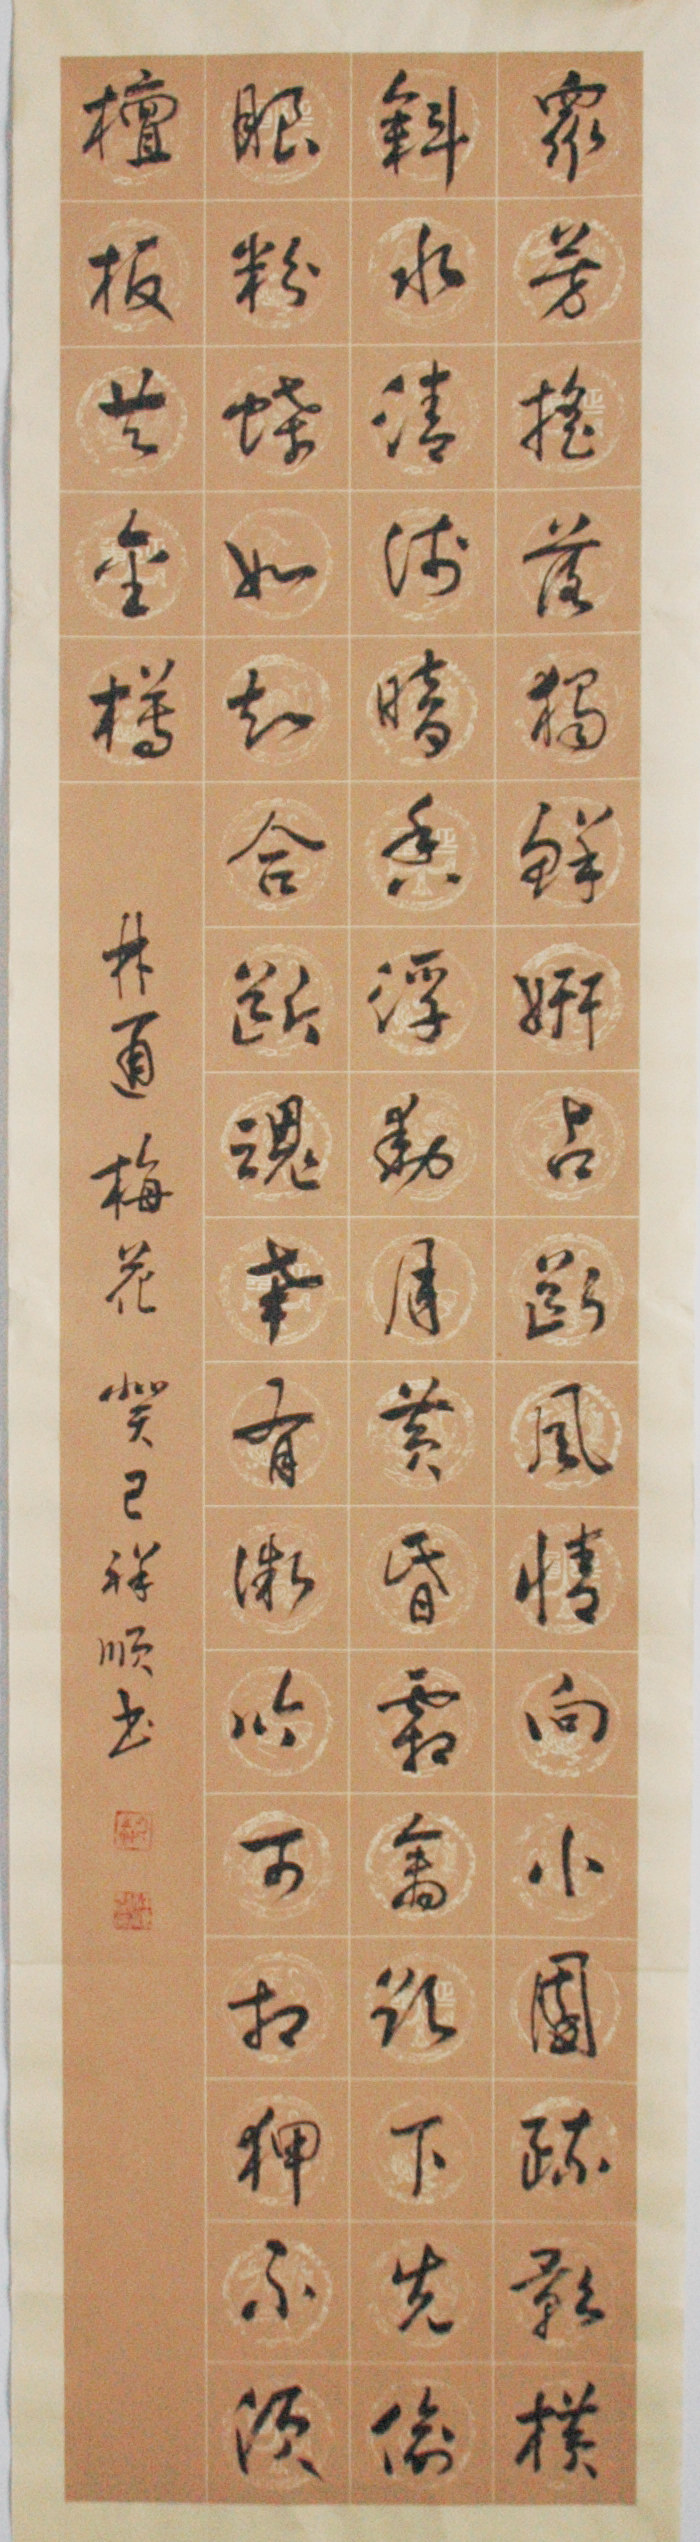 眾芳搖落獨鮮妍占斷風情向小園疏影橫
斜水清淺暗香浮動月黃昏霜禽欲下先偷
眼粉蝶如知合斷魂幸有微吟可相狎不須
檀板共金樽
林逋梅花癸巳祥順书